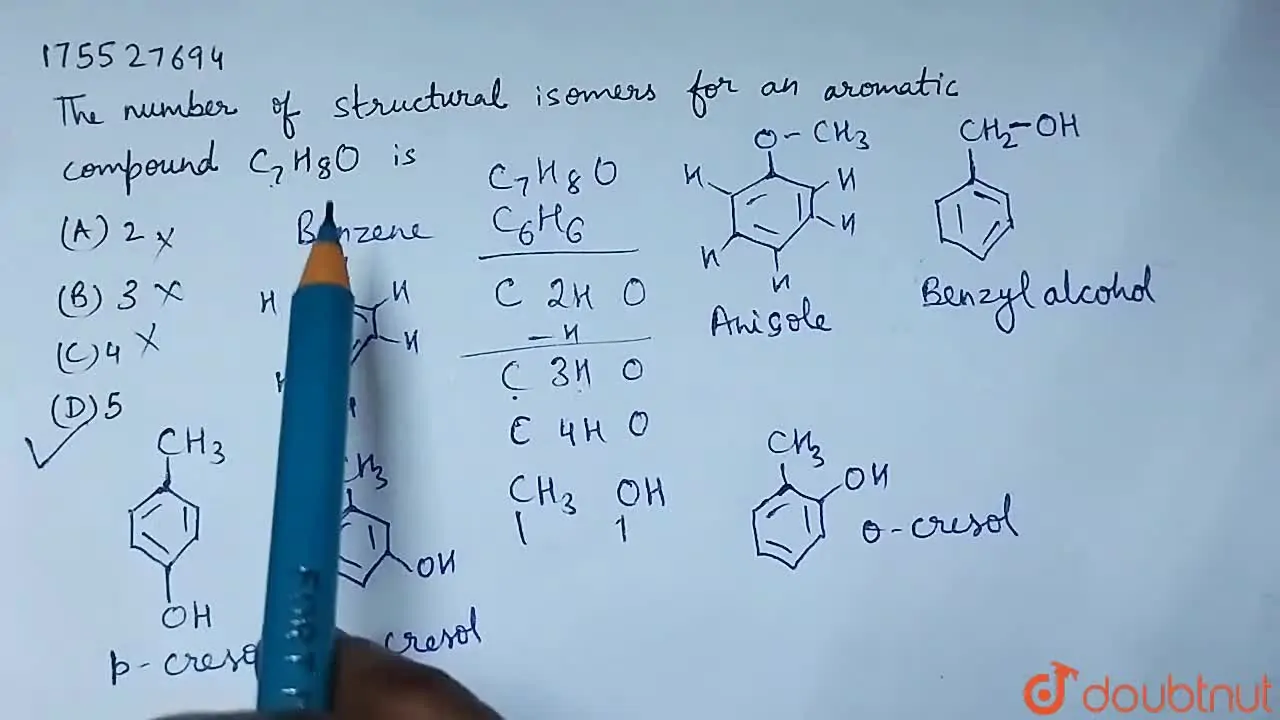 1755 27694
The number of structural isomers for an aromatic
compound C7H8O is
(A) 2 x
(B) 3 x
(C) 4 x
(D) 5
C7H8O
C6H6
C 2H O
- H
C 3H O
C 4H O
CH3 OH
H
H
H
O-CH3
H
H
H
H
H
Anisole
CH2-OH
Benzyl alcohol
CH3
OH
OH
cresol
CH3
OH
o-cresol
doubtnut